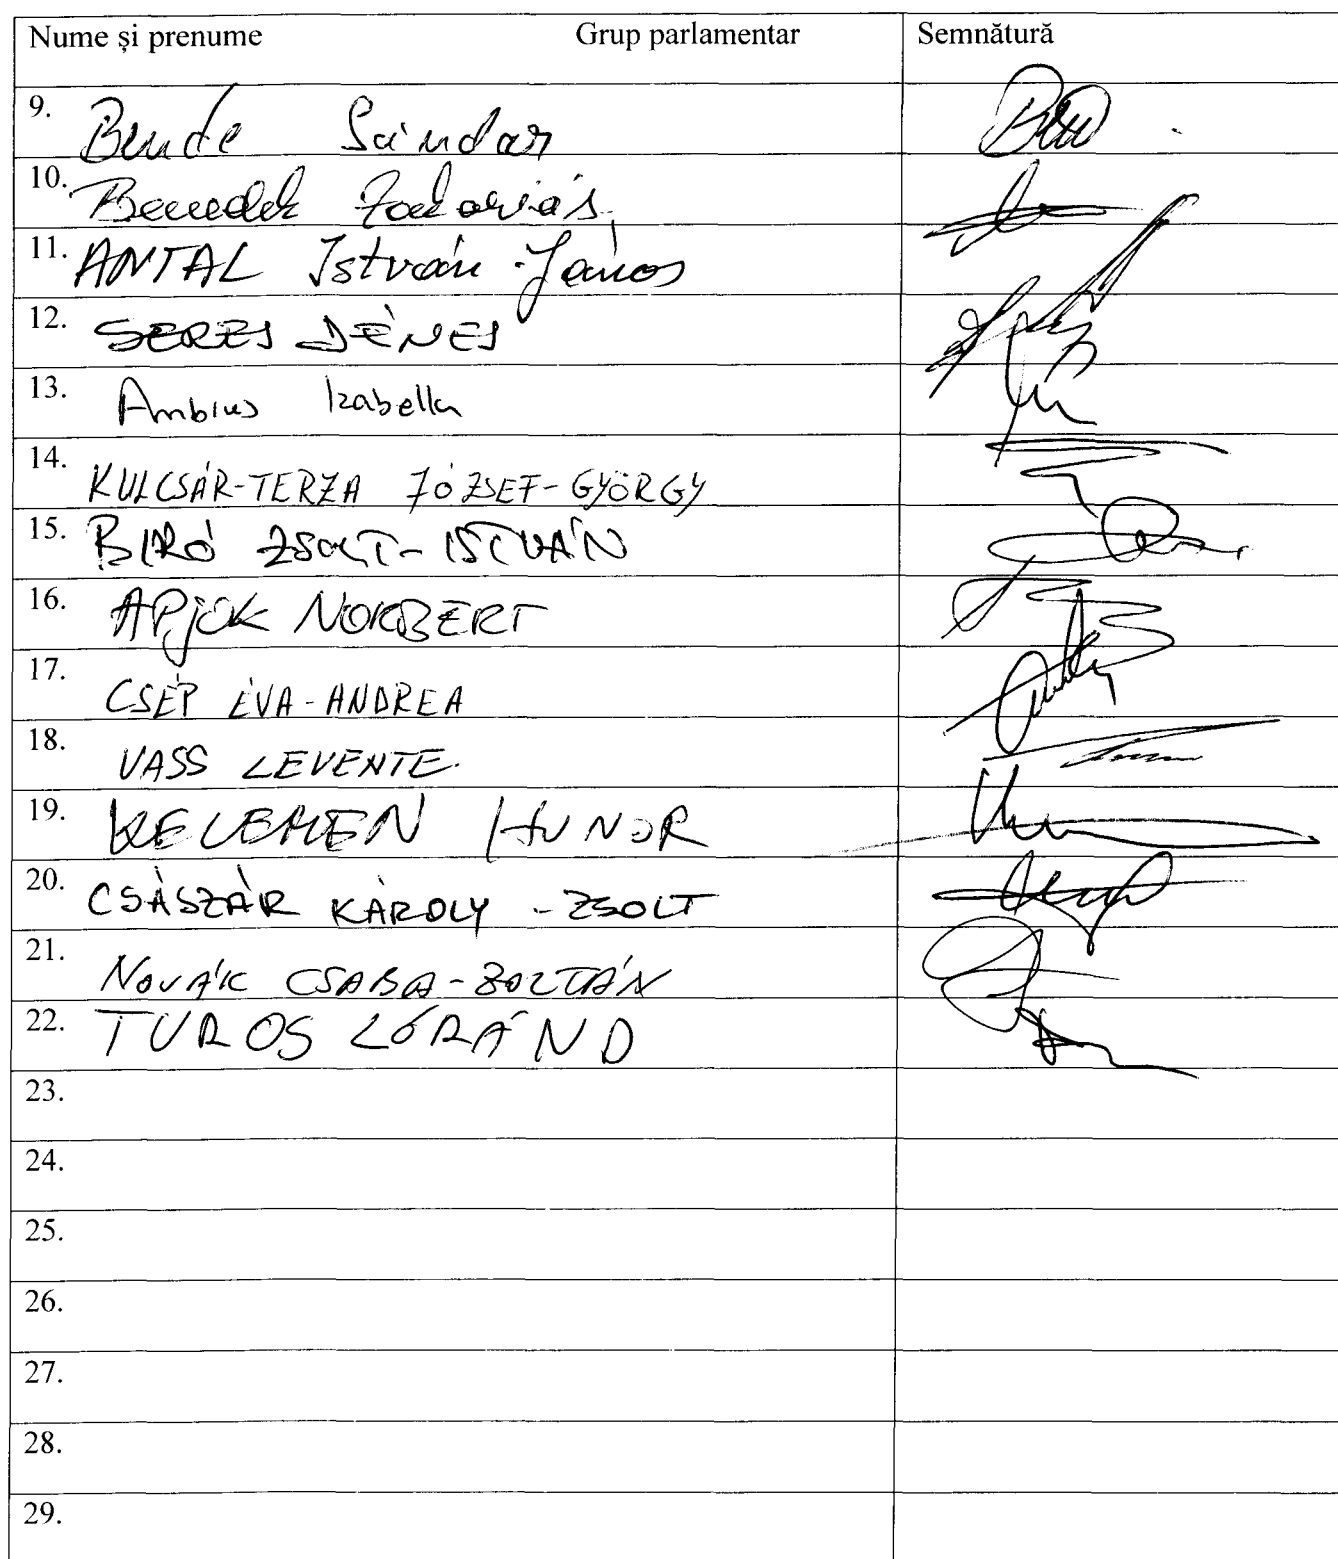 Nume și prenume Grup parlamentar Semnătură
9. Bende Sándor
10. Benedek Zakariás
11. ANTAL István-János
12. SERES DÉNES
13. Ambrus Izabella
14. KULCSÁR-TERZA JÓZSEF-GYÖRGY
15. BIRÓ ZSOLT-ISTVÁN
16. APJOK NORBERT
17. CSÉP ÉVA-ANDREA
18. VASS LEVENTE
19. KELEMEN HUNOR
20. CSÁSZÁR KÁROLY-ZSOLT
21. NOVÁK CSABA-ZOLTÁN
22. TUROS LÓRÁND
23.
24.
25.
26.
27.
28.
29.